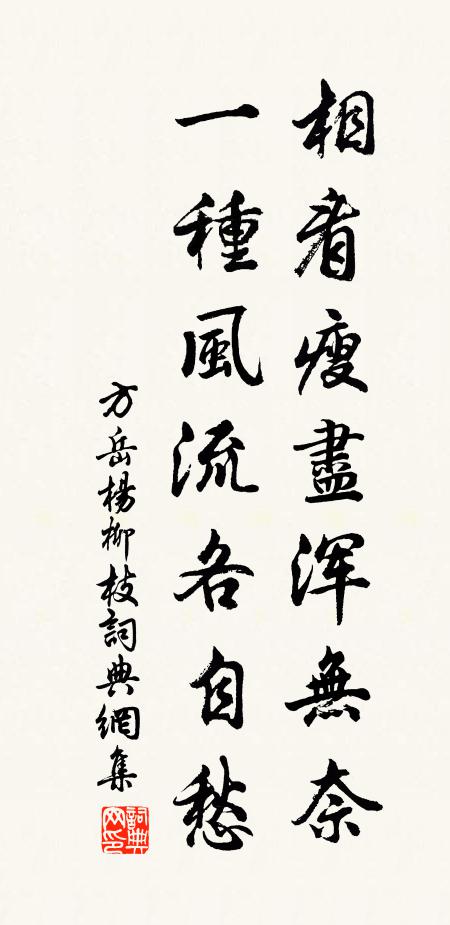 相看瘦盡渾無奈
一種風流各自愁
方岳楊柳枝詞典網集
詞典網印